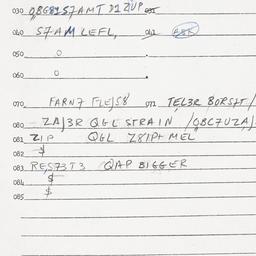 030 QBG81S7AMT D1ZUP 031
040 S7AM LEFL, 042 ABK
050 0
060 0
070 FARN7 FLEJS8 071 TEL3R BORSZT/
080 ZAJ3R QGL STRAIN /QBC7UZAJ
081 ZIP QGL Z8IP+ MEL
082 $
083 RES73T3 QAP BIGGER
084 $
085 $